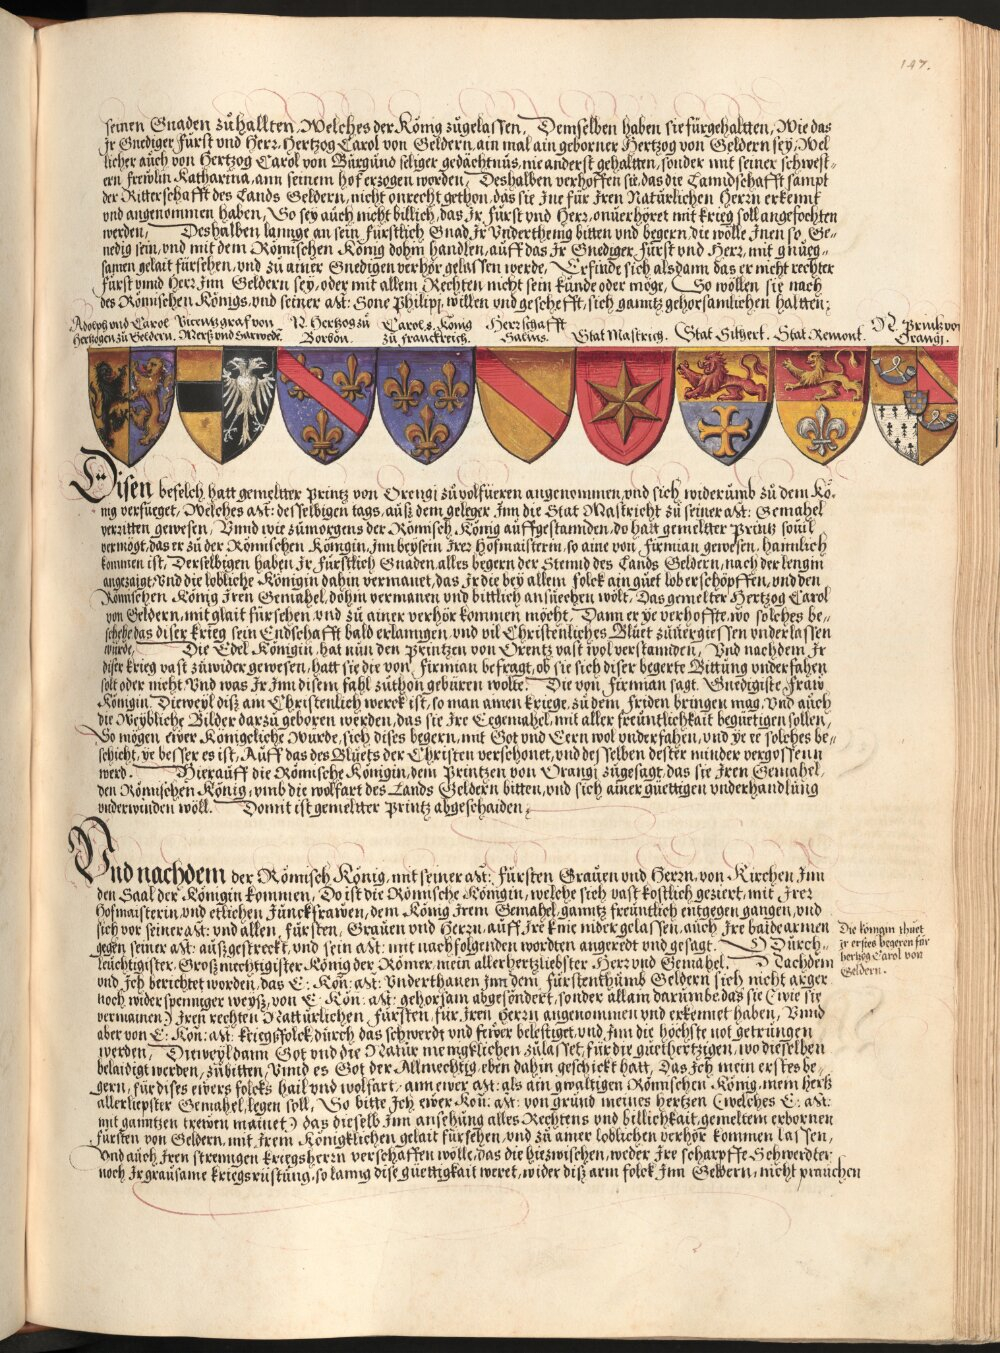 147.
seinen Gnaden zůhallten, Welches der König zůgelassen, Demselben haben sie fürgehaltten, Wie das
Ir Gnediger Fürst vnd Herr, Hertzog Carol von Geldern, ain mal ain geborner Hertzog von Geldern sey, Wel
licher aůch von Hertzog Carol von Bůrgůnd seliger gedächtnůs, nie anderst gehaltten, sonder mit seiner schwest-
ern frewlin Katharina, ann seinem hof erzogen worden, Deshalben verhoffen sie, das die Lanndschafft sampt
der Ritterschafft des Lands Geldern, nicht onrecht gethon, das sie Ine für Iren Natürlichen Herrn erkennt
vnd angenommen haben, So sey aůch nicht billich, das Ir Fürst vnd Herr, onůerhöret mit krieg soll angefochten
werden, Deshalben lannge an sein Fürstlich Gnad Ir Vnderthenig bitten vnd begern, die wölle Inen so Ge-
nedig sein, vnd mit dem Römischen König dohin handlen, aůff das Ir Gnediger Fürst vnd Herr, mit gnůeg-
samen gelait fürsehen, vnd zů ainer Gnedigen verhör gelassen werde, Erfinde sich alsdann das er nicht rechter
Fürst vnnd Herr Inn Geldern sey, oder mit allem Rechten nicht sein künde oder möge, So wöllen sie nach
des Römischen Königs, vnd seiner Mt: Sone Philipi, willen vnd geschefft, sich ganntz gehorsamlichen haltten;
Adolph vnd Carole
Hertzogen zů Geldern.
Vicentz graf von
Merß vnd Sarwede.
N. Hertzog zů
Borbon.
Carol. 8. König
zů Franckreich.
Herrschafft
Salins.
Stat Mastrich.
Stat Sithert.
Stat Remont.
N. Printz von
Orangi.
Disen befelch hatt gemeltter Printz von Orengi zů volfüeren angenommen, vnd sich widerůmb zů dem Kö-
nig verfüeget, Welches Mt: desselbigen tags, aůß dem geleger Inn die Stat Mastricht zů seiner Mt: Gemahel
verritten gewesen, Vnnd wie zůmorgens der Römisch König aůffgestannden, do hatt gemeltter Printz souil
vermögt, das er zů der Römischen Königin, Inn beysein Irer Hofmaisterin, so aine von Firmian gewesen, hannlich
kommen ist, Derselbigen haben Ir Fürstlich Gnaden, alles begern der Stennd des Lands Geldern, nach der lenngin
angezaigt, Vnd die lobliche Königin dahin vermanet, das Ir die bey allem folck ain gůet lob erschöpffen, vnd den
Römischen König Iren Gemahel, döhin vermanen vnd bittlich ansůechen wölt, Das gemelter Hertzog Carol
von Geldern, mit glait fürsehen vnd zů ainer verhör kommen möcht, Dann er ye verhoffte, wo solches be-
schehe das diser krieg sein Endschafft bald erlanngen, vnd vil Christenliches Blůet zůůergiessen vnderlassen
würde, Die Edel Königin, hat nůn den Printzen von Orentz vast wol verstannden, Vnd nachdem Ir
diser krieg vast zůwider gewesen, hatt sie die von Firmian befragt, ob sie sich diser begerte Bittůng vnderfahen
solt oder nicht, Vnd was Ir Inn disem fahl zůthon gebüren wolte. Die von Firmian sagt. Gnedigiste Fraw
Königin, Dieweyl diß am Christenlich werck ist, so man ainen kriege, zů dem friden bringen mag, Vnd aůch
die Weybliche Bilder darzů geboren werden, das sie Ire Eegemahel, mit aller freůntlichkait begüetigen sollen,
So mögen ewer Königeliche Würde, sich dises begern, mit Got vnd Eern wol vnderfahen, vnd ye er solches be-
schicht, ye besser es ist, Aůff das des Blůets der Christen verschonet, vnd desselben dester minder vergossenn
werd. Hieraůff die Römische Königin, dem Printzen von Orangi zůgesagt, das sie Iren Gemahel,
den Römischen König, vmb die wolfart des Lands Geldern bitten, vnd sich ainer güettigen vnderhandlůng
vnderwinden wöll. Domit ist gemeltter Printz abgeschaiden,
Vnd nachdem der Römisch König, mit seiner Mt: Fürsten Graůen vnd Herrn, von Kirchen Inn
den Saal der Königin kommen, Do ist die Römische Königin, welche sich vast kostlich geziert, mit Irer
Hofmaisterin, vnd etlichen Jůnckfrawen, dem König Irem Gemahel, ganntz freůntlich entgegen gangen, vnd
sich vor seiner Mt: vnd allen, Fürsten, Graůen vnd Herrn, aůff Ire knie nider gelassen, aůch Ire baide armen
gegen seiner Mt: aůßgestreckt, vnd sein Mt: mit nachfolgenden wordten angeredt vnd gesagt. O Důrch-
leůchtigister, Großmechtigister König der Römer, mein allerhertzliebster Herr vnd Gemahel. Nachdem
vnd Ich berichtet worden, das E: Kön: Mt: Vnderthanen Inn dem Fürstenthůmb Geldern sich nicht arger
noch widerspenniger weyß, von E: Kön: Mt: gehorsam abgesöndert, sonder allain darůmbe das sie (wie sie
vermainen) Iren rechten Natürlichen Fürsten, für Iren Herrn angenommen vnd erkennet haben, Vnnd
aber von E: Kön: Mt: kriegßfolck, důrch das schwerdt vnd fewer belestiget, vnd Inn die höchste not getrůngen
werden, Dieweyl dann Got vnd die Natůr menigklichen zůlasset, für die gůethertzigen, wo dieselben
belaidigt werden, zůbitten, Vnnd es Got der Allmechtig, eben dahin geschickt hatt, Das Ich mein erstes be-
gern, für dises ewers folcks hail vnd wolfart, ann ewer Mt: als ain gwaltigen Römischen König, mein hertz
allerliepster Gemahel, legen soll, So bitte Ich ewer Kön: Mt: von grůnd meines hertzen (welches E: Mt:
mit ganntzen trewen mainet) das dieselb Inn ansehůng alles Rechtens vnd billichkait, gemeltem erbornen
Fürsten von Geldern, mit Irem Königklichen gelait fürsehen, vnd zů ainer loblichen verhör kommen lassen,
Vnd aůch Iren strenngen kriegsherrn verschaffen wölle, das die hiezwischen, weder Ire scharpffe Schwerdter
noch Ir graůsame kriegsrüstůng, so lanng dise güettigkait weret, wider diß arm folck Inn Geldern, nicht praůchen
Die königin thůet
Ir erstes begeren für
hertzog Carol von
Geldern.